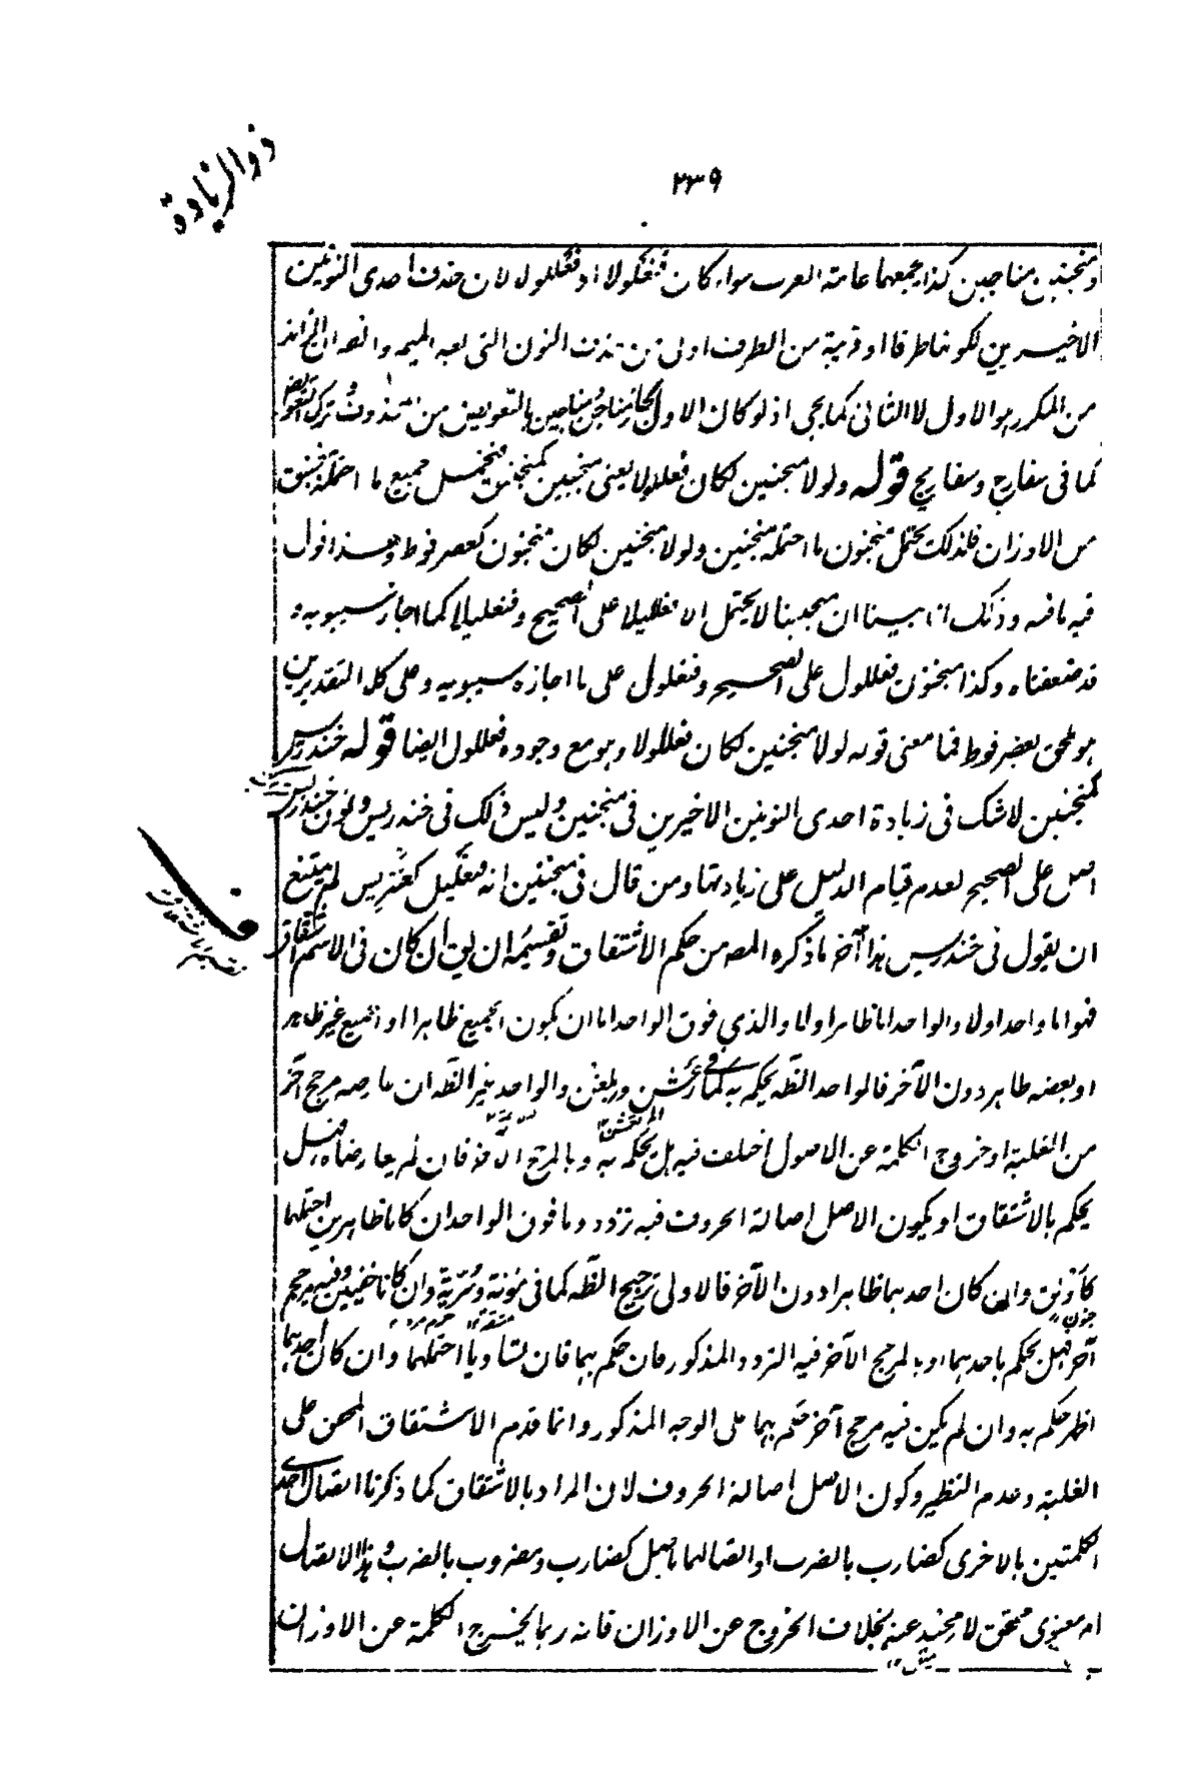 ذو الزيادة
٢٣٩
ومنجنين مناجين كذا يجمعها عامة العرب سواء كان فنعلولا او فعللولا لان حذف احدى النونين
الاخيرين لكونها طرفا او قريبة من الطرف اولى من حذف النون التى بعد الميم وايضا الزائد
من المكرر هو الاول لا الثانى كما يجى اذ لو كان الاول لجاز مناجن ومناجين بالتعويض من المحذوف وترك التعويض
كما فى سفارج وسفاريج قوله ولولا منجنين لكان فعللولا يعنى منجنين كمنجنيق فيحتمل جميع ما احتمله منجنيق
من الاوزان فلذلك يحتمل منجنون ما احتمله منجنين ولولا منجنين لكان منجنون كعضرفوط وهذا قول
فيه ما فيه وذلك انا بينا ان منجنينا لا يحتمل الا فعلليلا على الصحيح وفنعليلا كما اجازه سيبويه و
قد ضعفناه وكذا منجنون فعللول على الصحيح وفنعلول على ما اجازه سيبويه وعلى كلا التقديرين
هو ملحق بعضرفوط فما معنى قوله لولا منجنين لكان فعللولا وهو مع وجوده فعللول ايضا قوله خندريس
كمنجنين لا شك فى زيادة احدى النونين الاخيرين فى منجنين وليس ذلك فى خندريس ونون خندريس
اصل على الصحيح لعدم قيام الدليل على زيادتها ومن قال فى منجنين انه فنعليل كعنتريس لم يمتنع
ان يقول فى خندريس هذا آخر ما ذكره المصـ من حكم الاشتقاق وتقسيمه ان يق ان كان فى الاسم اشتقاق
فهو اما واحد او لا والواحد اما ظاهر او لا والذي فوق الواحد اما ان يكون الجميع ظاهرا او الجميع غير ظاهر
او بعضه ظاهر دون الآخر فالواحد الظه يحكم به كما فى رعشن وبلغن والواحد غير الظه ان عارضه مرجح آخر
من الغلبة او خروج الكلمة عن الاصول اختلف فيه هل يحكم به وبالمرجح الآخر فان لم يعارضه فهل
يحكم بالاشتقاق او بكون الاصل اصالة الحروف فيه تردد وما فوق الواحد ان كانا ظاهرين احتملهما
كاولق وان كان احدهما ظاهرا دون الآخر فالاولى ترجيح الظه كما فى مؤنة وسرية وان كانا خفيين وفيه مرجح
آخر فهل يحكم باحدهما او بالمرجح الآخر فيه التردد المذكور فان حكم بهما فان تساويا احتملهما وان كان احدهما
اظهر حكم به وان لم يكن فيه مرجح آخر حكم بهما على الوجه المذكور وانما قدم الاشتقاق المحقق على
الغلبة وعدم النظير وكون الاصل اصالة الحروف لان المراد بالاشتقاق كما ذكرنا اتصال احدى
الكلمتين بالاخرى كضارب بالضرب او اتصالهما باصل كضارب ومضروب بالضرب وهذا الاتصال
امر معنوى محقق لا محيد عنه بخلاف الخروج عن الاوزان فانه ربما يخرج الكلمة عن الاوزان